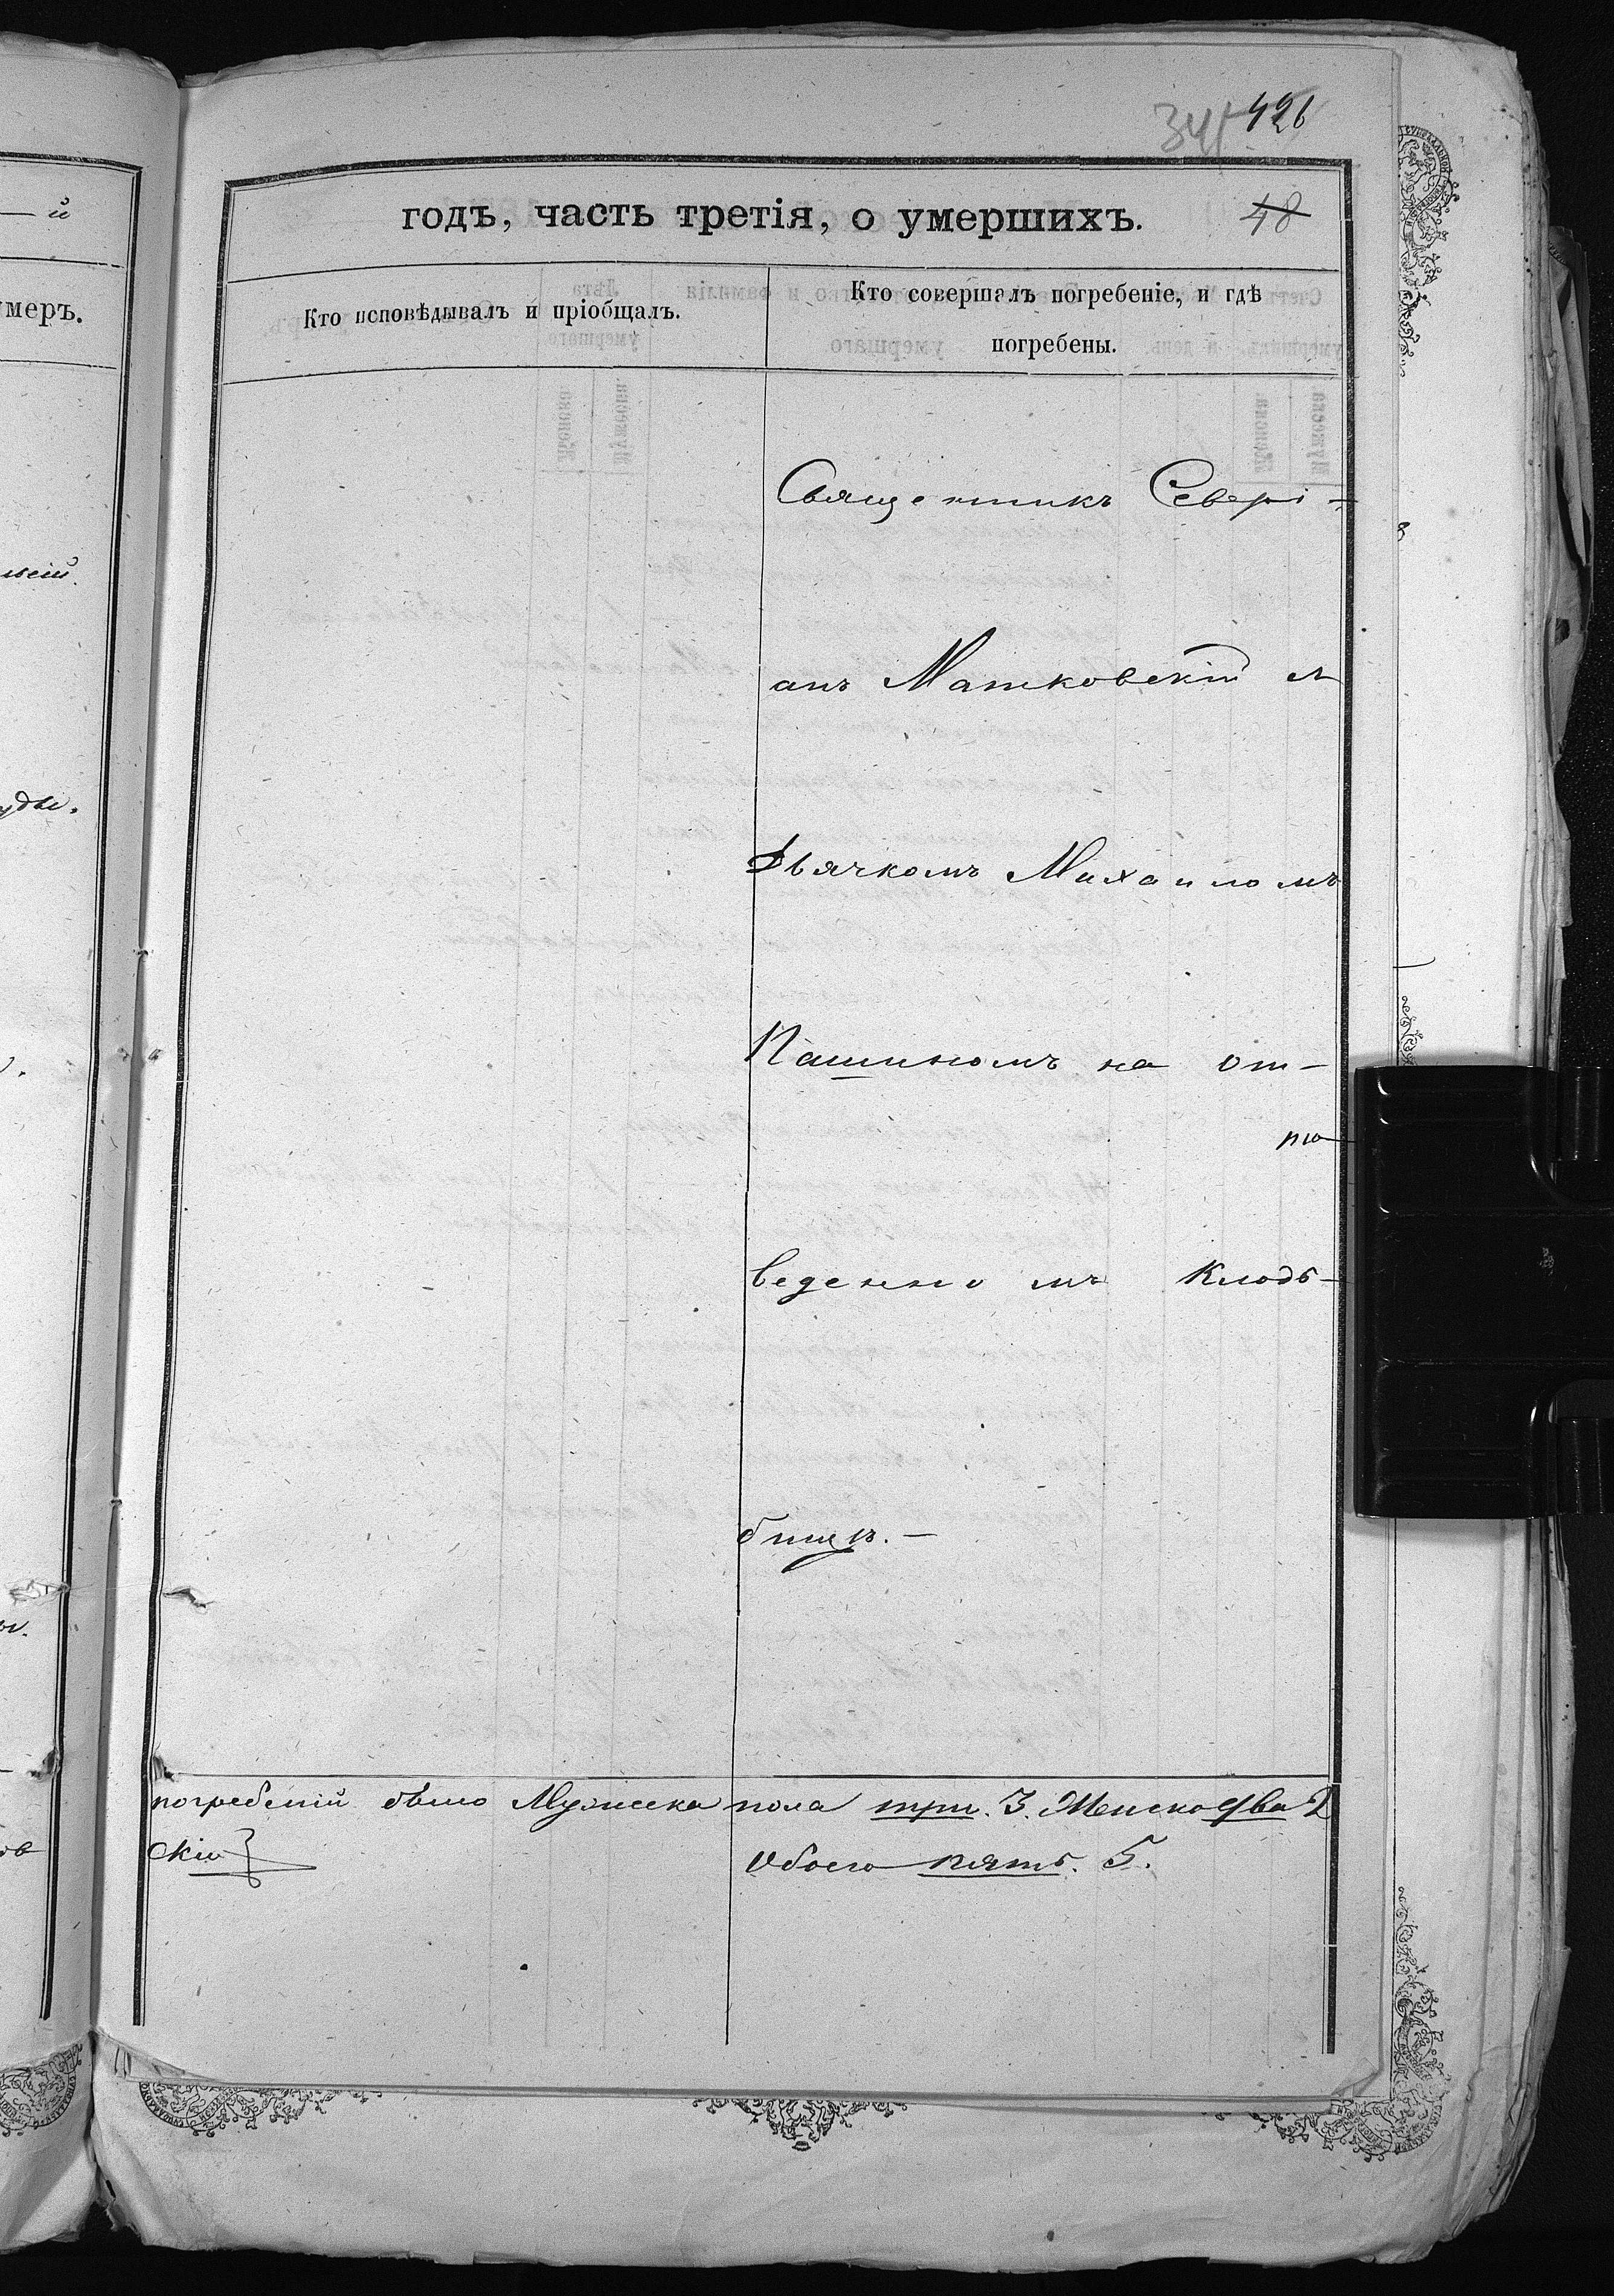 426
341
годъ, часть третія, о умершихъ.
48
й
умеръ.
Кто исповѣдывалъ и пріобщалъ.
Кто совершалъ погребеніе, и гдѣ
погребены.
Священникъ Севері-
анъ Матковскій съ
Дьячкомъ Михаиломъ
Пашиномъ на от-
веденномъ Кладъ-
бищѣ. —
погребеній было Мужеска пола три. 3. Женска два 2
скій
Обоего пять. 5.